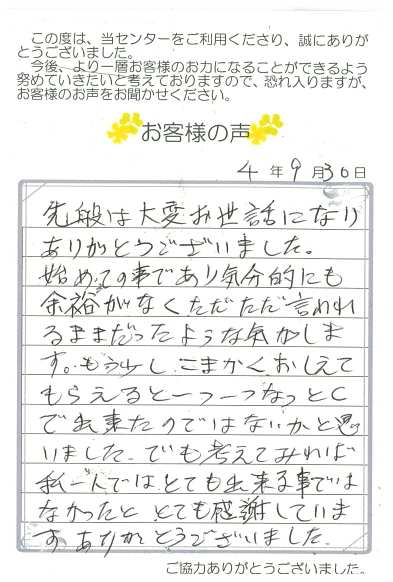 この度は、当センターをご利用くださり、誠にありが
とうございました。
今後、より一層お客様のお力になることができるよう
努めていきたいと考えておりますので、恐れ入りますが、
お客様のお声をお聞かせください。
お客様の声
4 年 9 月 30 日
先般は大変お世話になり
ありがとうございました。
始めての事であり気分的にも
余裕がなくただただ言われ
るままだったような気がしま
す。もう少しこまかくおしえて
もらえると一つ一つなっとく
で出来たのではないかと思
いました。でも考えてみれば
私一人ではとても出来る事では
なかったと とても感謝していま
す。ありがとうございました。
ご協力ありがとうございました。